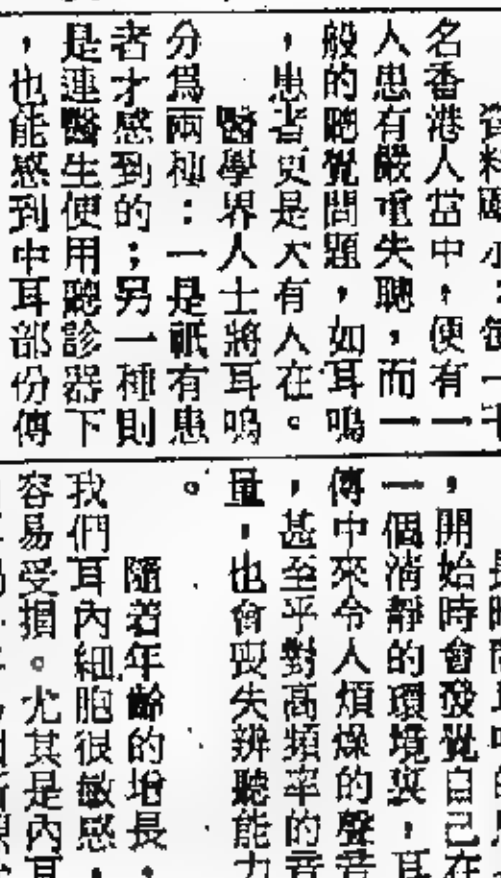 資料顯示：每一千
名香港人當中，便有一
人患有嚴重失聰，而一
般的聽覺問題，如耳鳴
，患者更是大有人在。
醫學界人士將耳鳴
分為兩種：一是祇有患
者才感到的；另一種則
是連醫生使用聽診器下
，也能感到中耳部份傳
，開始時會發覺自己在
一個清靜的環境裏，耳
傳中來令人煩燥的聲音
，甚至乎對高頻率的音
量，也會喪失辨聽能力
。
隨着年齡的增長，
我們耳內細胞很敏感，
容易受損。尤其是內耳